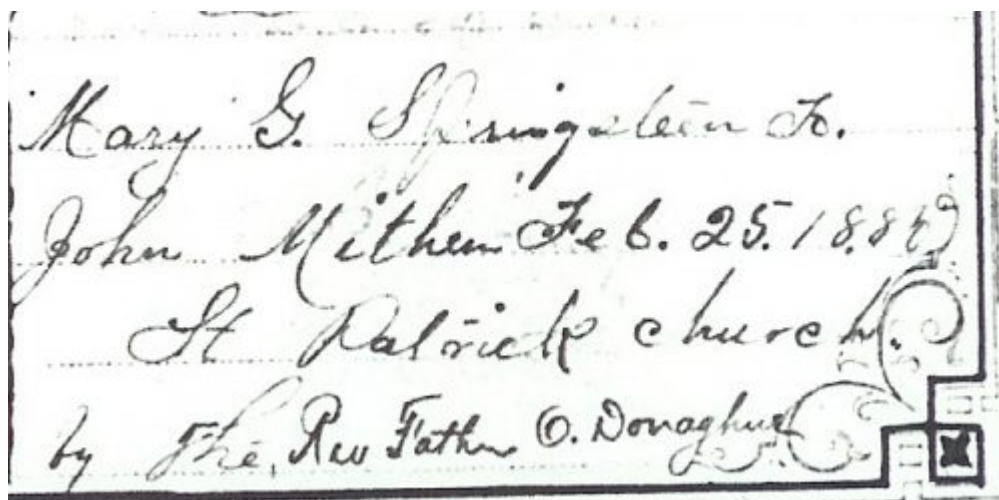 Mary G. Springsteen To.
John Mithen Feb. 25. 188
St Patrick church.
by The. Rev Father O. Donaghue